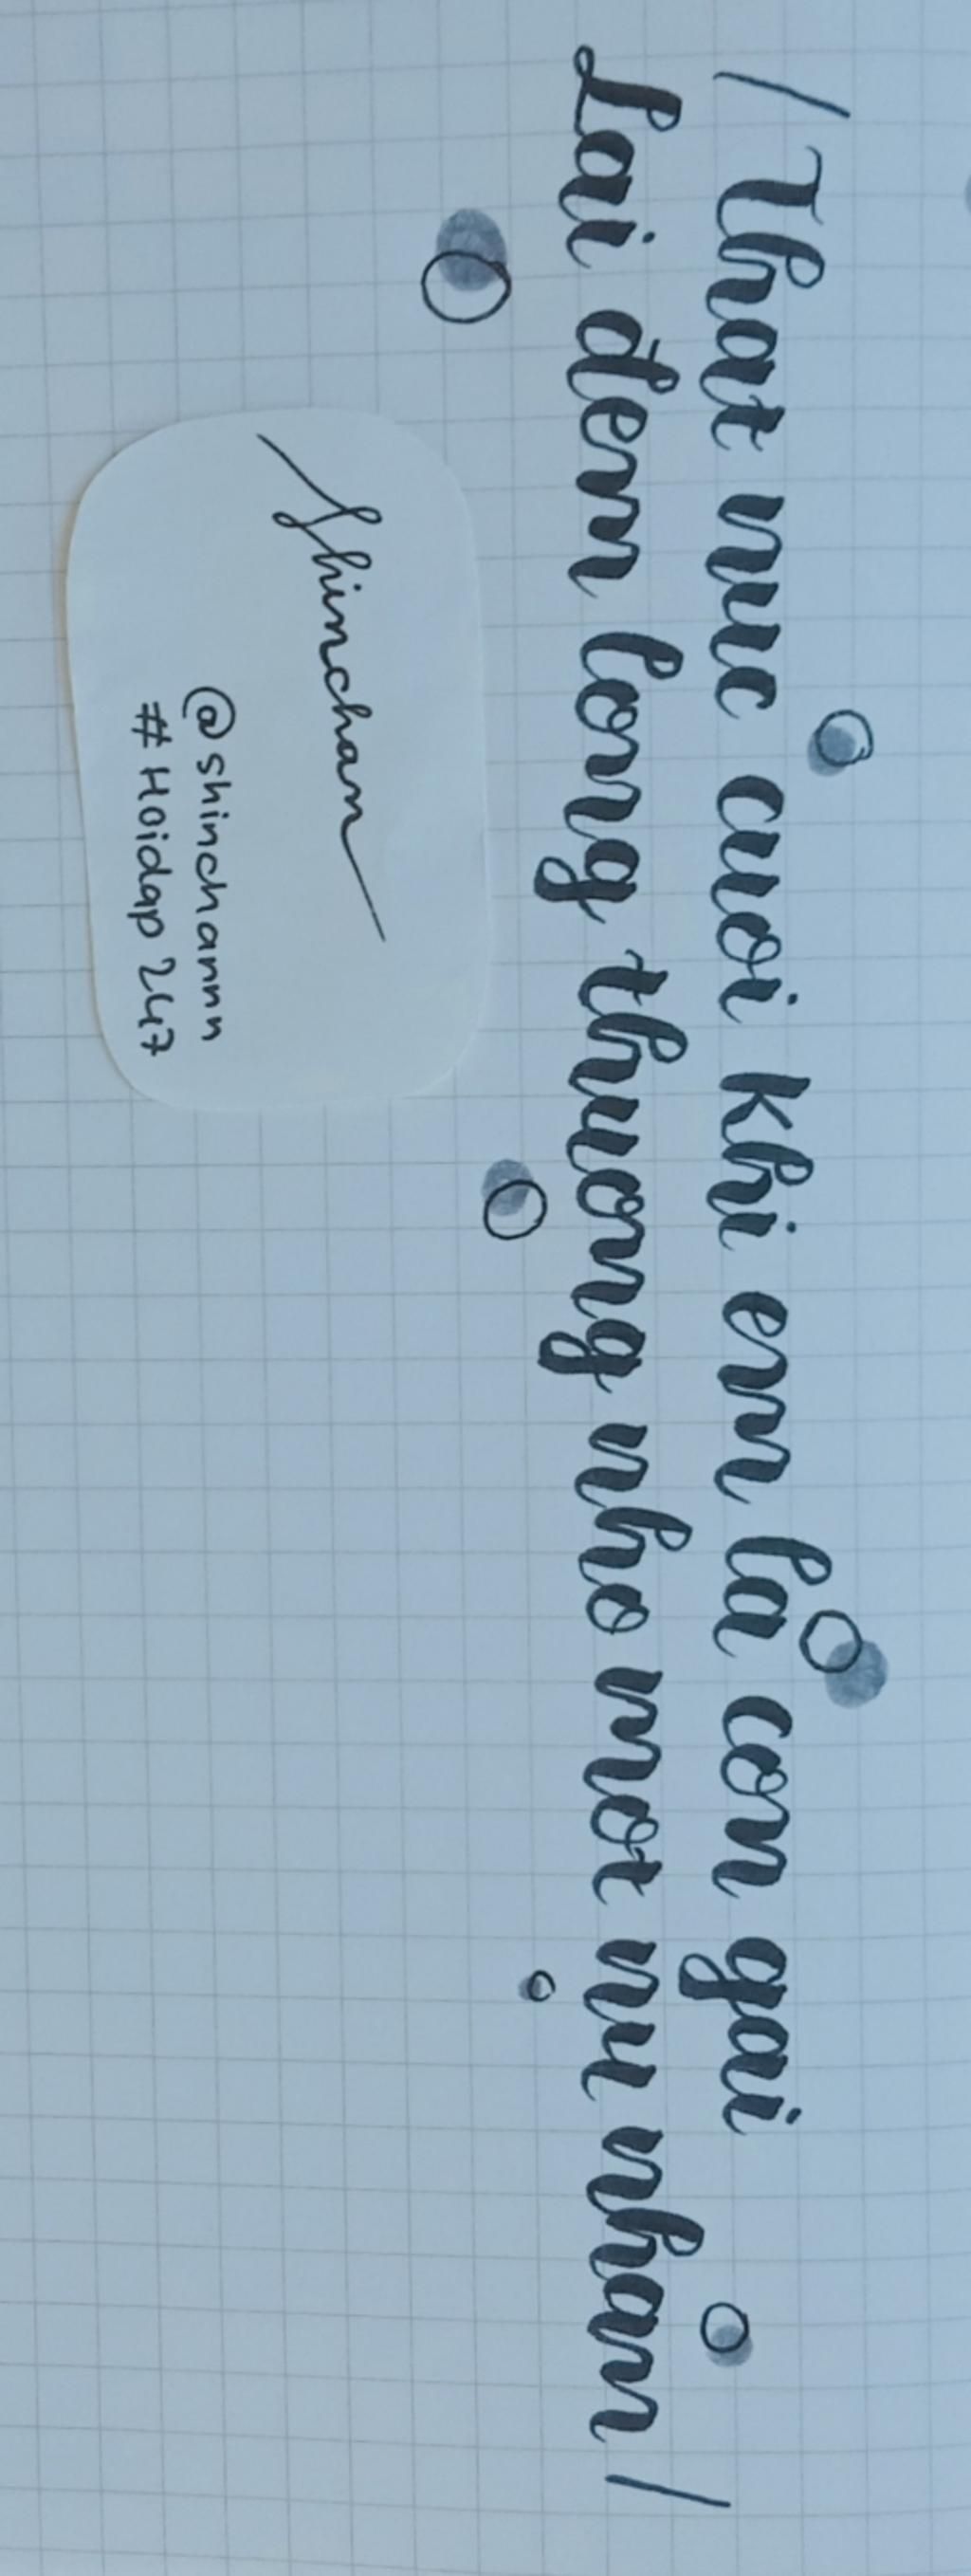 / That nuc cuoi khi em la con gai
Lai dem long thuong nho mot nu nhan /
Shinchan
@shinchannn
#Hoidap247